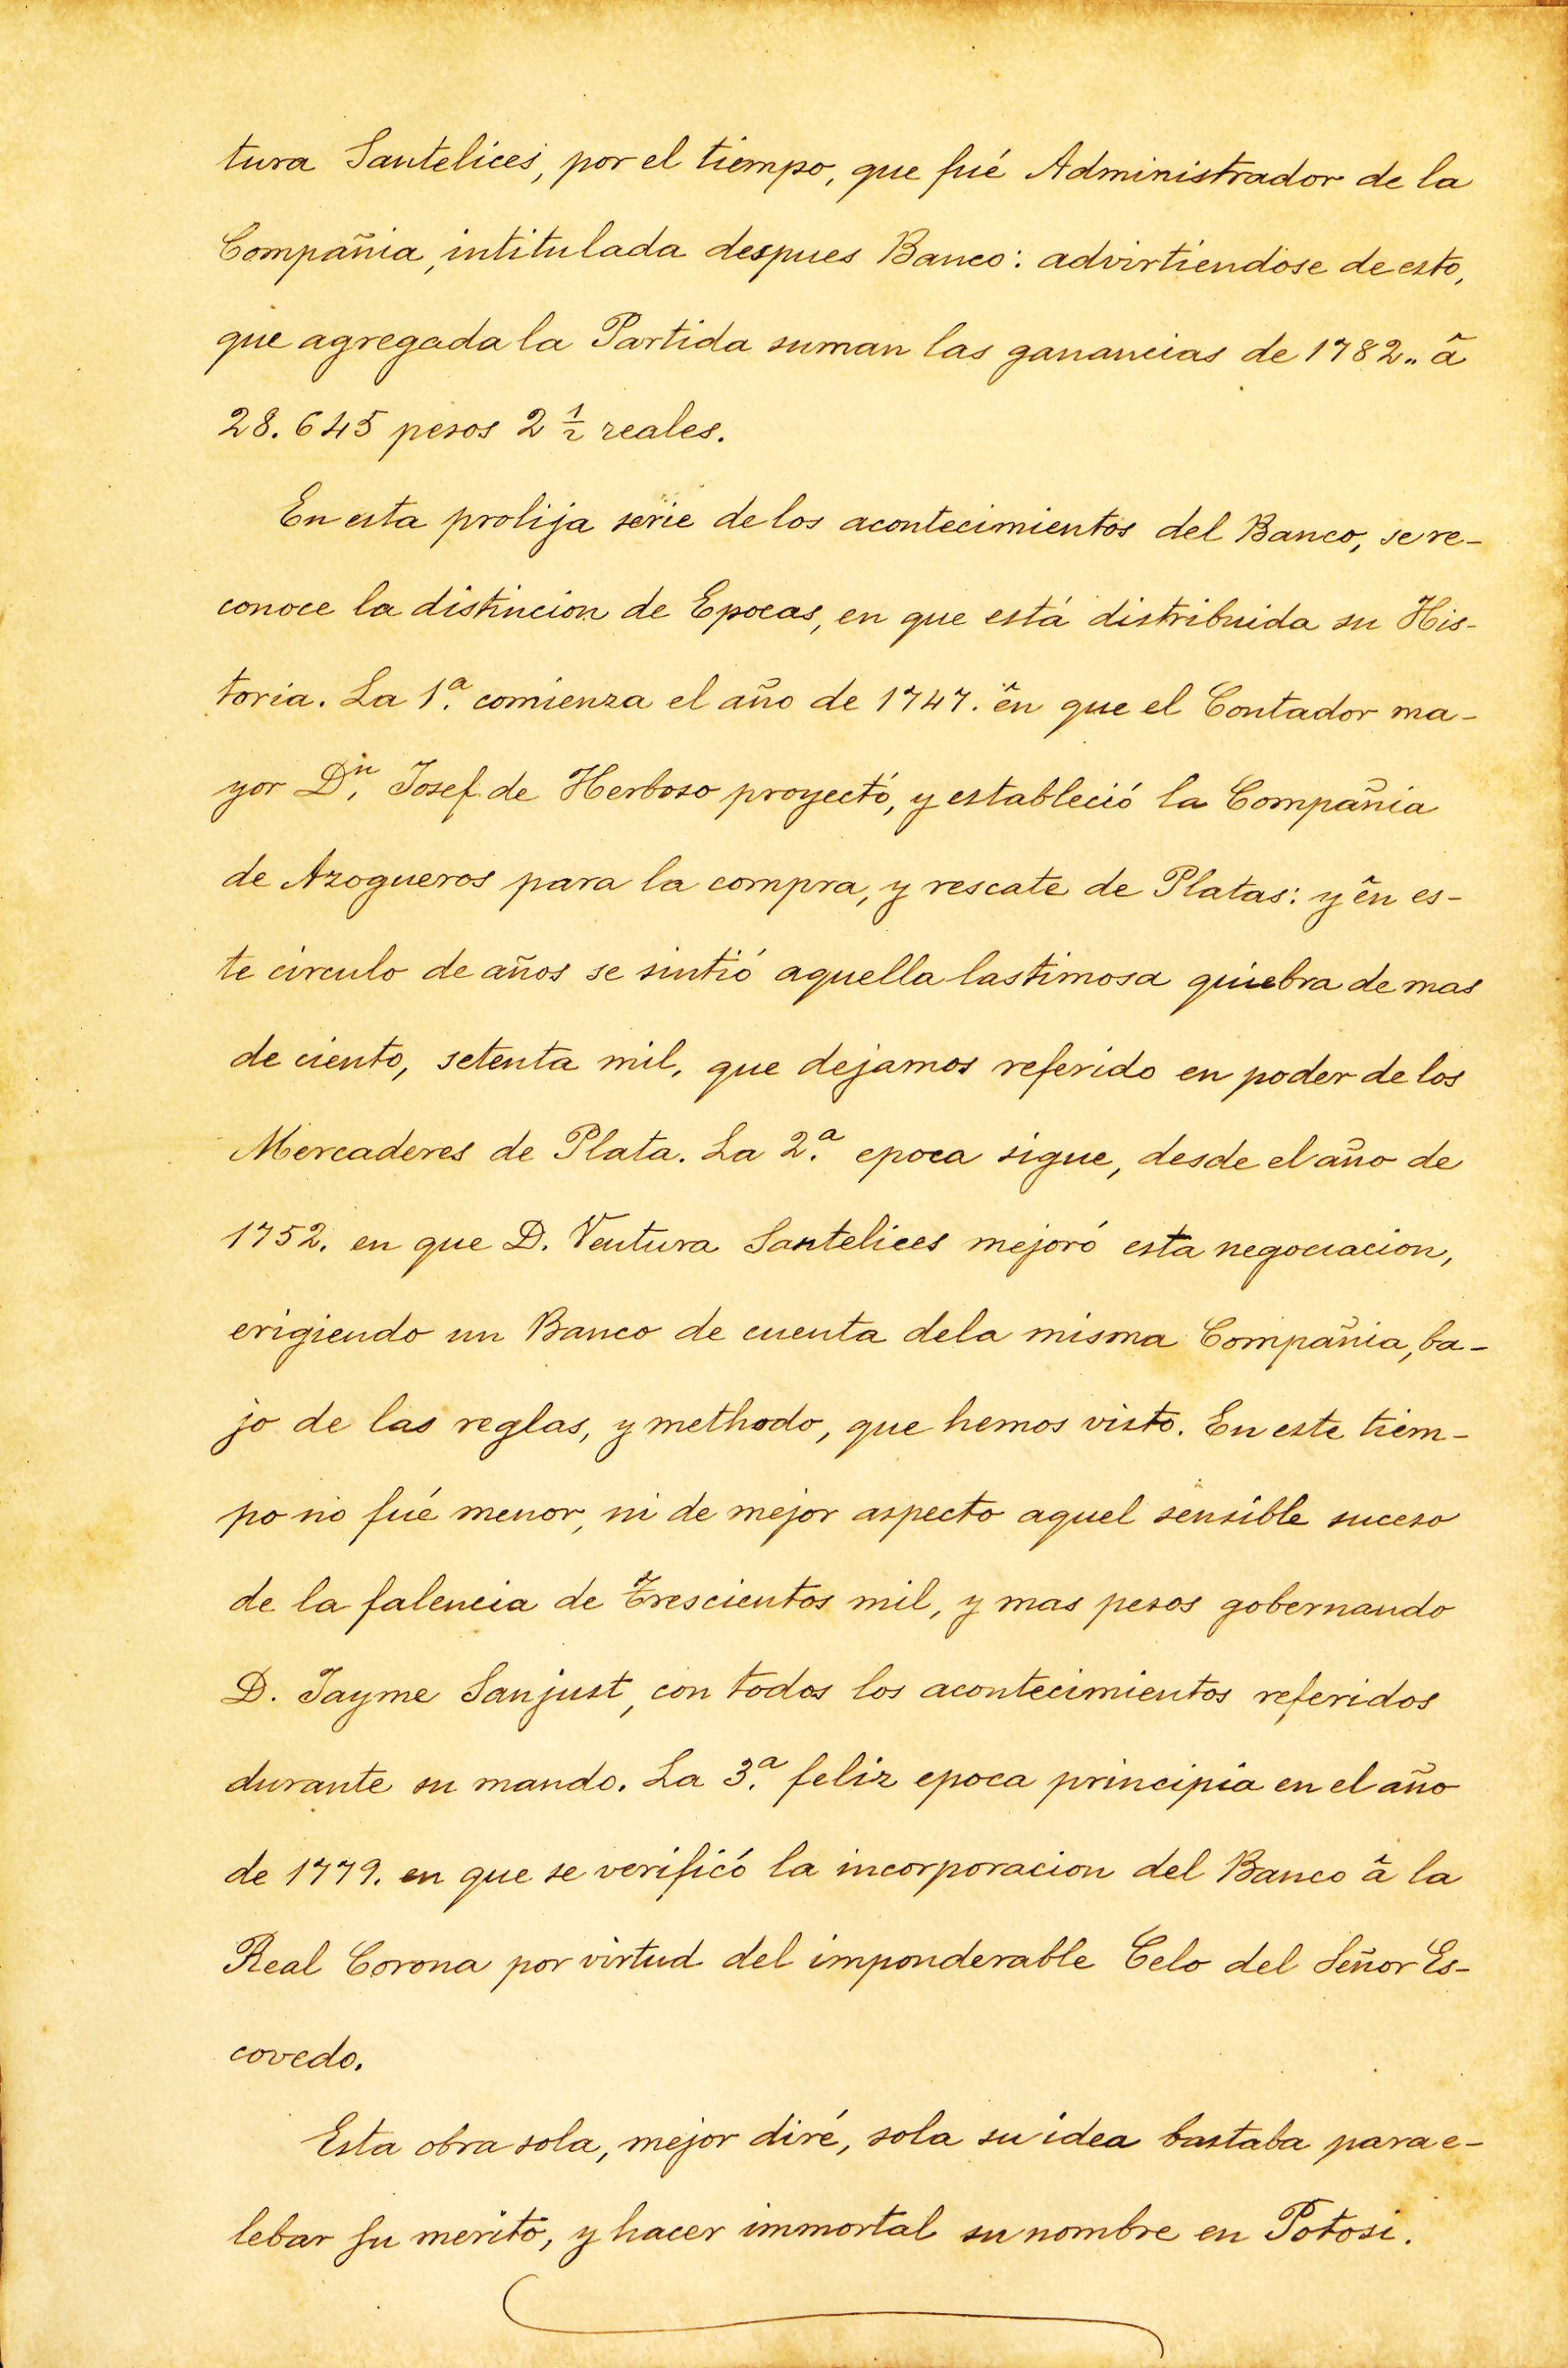 tura Santelices, por el tiempo, que fué Administrador de la
Compañia, intitulada despues Banco: advirtiendose de esto,
que agregada la Partida suman las ganancias de 1782.. â
28.645 pesos 2 ½ reales.
En esta prolija serie de los acontecimientos del Banco, se re-
conoce la distincion de Epocas, en que está distribuida su His-
toria. La 1.ª comienza el año de 1747. ên que el Contador ma-
yor D.ⁿ Josef de Herboso proyectó, y estableció la Compañia
de Azogueros para la compra, y rescate de Platas: y ên es-
te circulo de años se sintió aquella lastimosa quiebra de mas
de ciento, setenta mil, que dejamos referido en poder de los
Mercaderes de Plata. La 2.ª epoca sigue, desde el año de
1752. en que D. Ventura Santelices mejoró esta negociacion,
erigiendo un Banco de cuenta dela misma Compañia, ba-
jo de las reglas, y methodo, que hemos visto. En este tiem-
po no fué menor, ni de mejor aspecto aquel sensible suceso
de la falencia de trescientos mil, y mas pesos gobernando
D. Jayme Sanjust, con todos los acontecimientos referidos
durante su mando. La 3.ª feliz epoca principia en el año
de 1779. en que se verificó la incorporacion del Banco â la
Real Corona por virtud del imponderable Celo del Señor Es-
covedo.
Esta obra sola, mejor diré, sola su idea bastaba para e-
lebar su merito, y hacer immortal su nombre en Potosi.